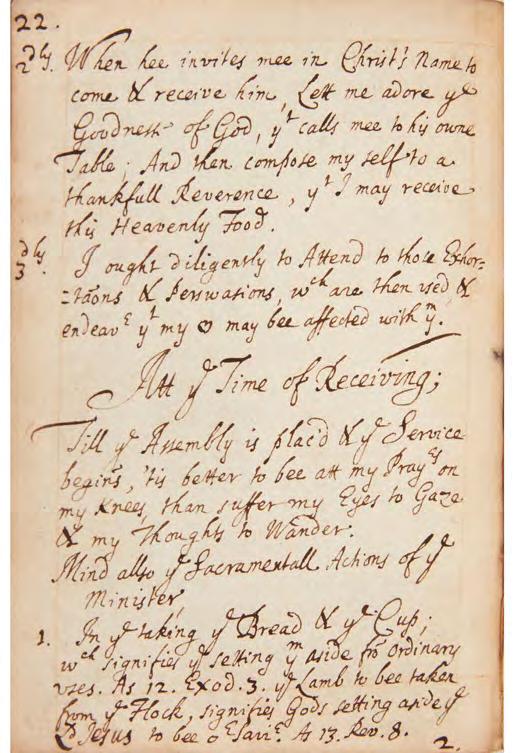 22.
2dly. When hee invites mee in Christ's Name to
come & receive him, Lett me adore ye
Goodness of God, yt calls mee to his owne
Table; And then compose my self to a
thankfull Reverence, yt I may receive
this Heavenly Food.
3dly. I ought diligently to Attend to those Exhor=
=tãons & Perswasions, wch are then used &
endeavE yt my ♡ may bee affected with ym.
Att ye Time of Receiving;
Till ye Assembly is plac'd & ye Service
begins, 'tis better to bee att my Prayes on
my Knees, than suffer my Eyes to Gaze
& my Thoughts to Wander.
Mind allso ye Sacramentall Actions of ye
Minister,
1. In ye taking ye Bread & ye Cup;
wch signifies ye setting ym aside frõ Ordinary
vses. As 12. Exod. 3. ye Lamb to bee taken
from ye Flock, signifies Gods setting aside ye
Ld Jesus to bee oE SaviE. As 13. Rev. 8.
2.